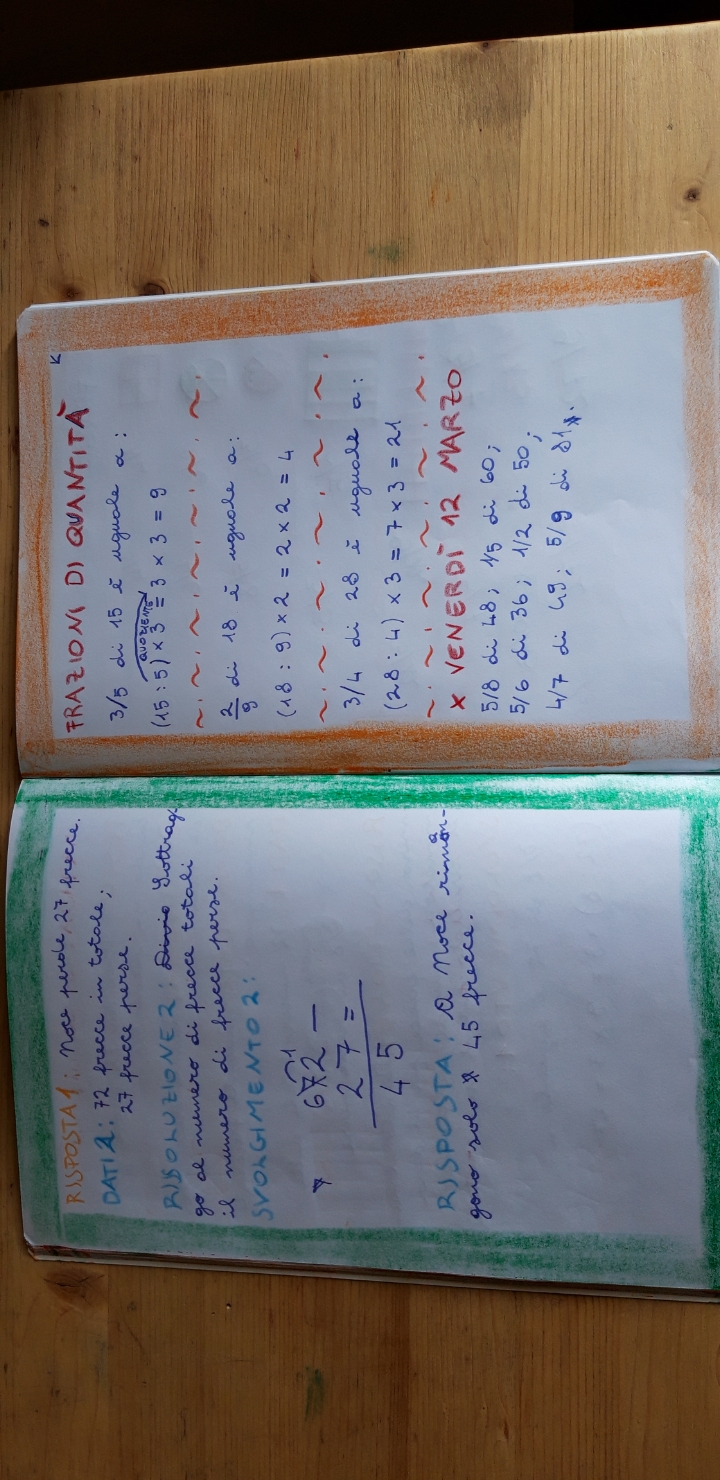 RISPOSTA 1: Noce perde 27 frecce.
DATI 2: 72 frecce in totale;
27 frecce perse.
RISOLUZIONE 2: Divio Sottrag
go al numero di frecce totali
il numero di frecce perse.
SVOLGIMENTO 2:
6 7 12 –
2 7 =
4 5
RISPOSTA: A Noce riman-
gono solo 45 frecce.
FRAZIONI DI QUANTITÀ
3/5 di 15 è uguale a:
QUOZIENTE
(15:5) × 3 = 3 × 3 = 9
~ · ~ · ~ · ~ · ~ · ~ · ~ ·
2/9 di 18 è uguale a:
(18 : 9) × 2 = 2 × 2 = 4
~ · ~ · ~ · ~ · ~ · ~ ·
3/4 di 28 è uguale a:
(28 : 4) × 3 = 7 × 3 = 21
~ · ~ · ~ · ~ · ~ · ~ · ~ ·
× VENERDÌ 12 MARZO
5/8 di 48; 1/5 di 60;
5/6 di 36; 1/2 di 50;
4/7 di 49; 5/9 di 81.